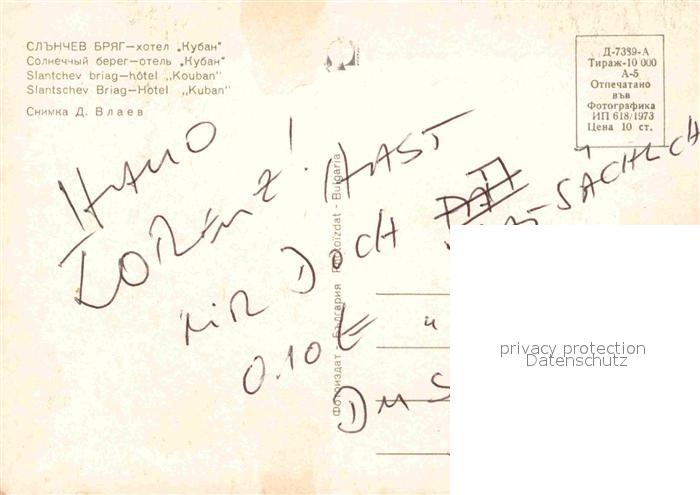 СЛЪНЧЕВ БРЯГ—хотел „Кубан"
Солнечный берег—отель „Кубан"
Slantchev briag—hôtel „Kouban"
Slantschev Briag—Hotel „Kuban"
Снимка Д. Влаев
Д-7389-А
Тираж-10 000
А-5
Отпечатано
във
Фотографика
ИП 618/1973
Цена 10 ст.
Фотоиздат - България Photoizdat - Bulgaria
HALLO
LORENZ! HAST
MIR DOCH TATSÄCHLICH
0.10 € "
DU S
privacy protection
Datenschutz